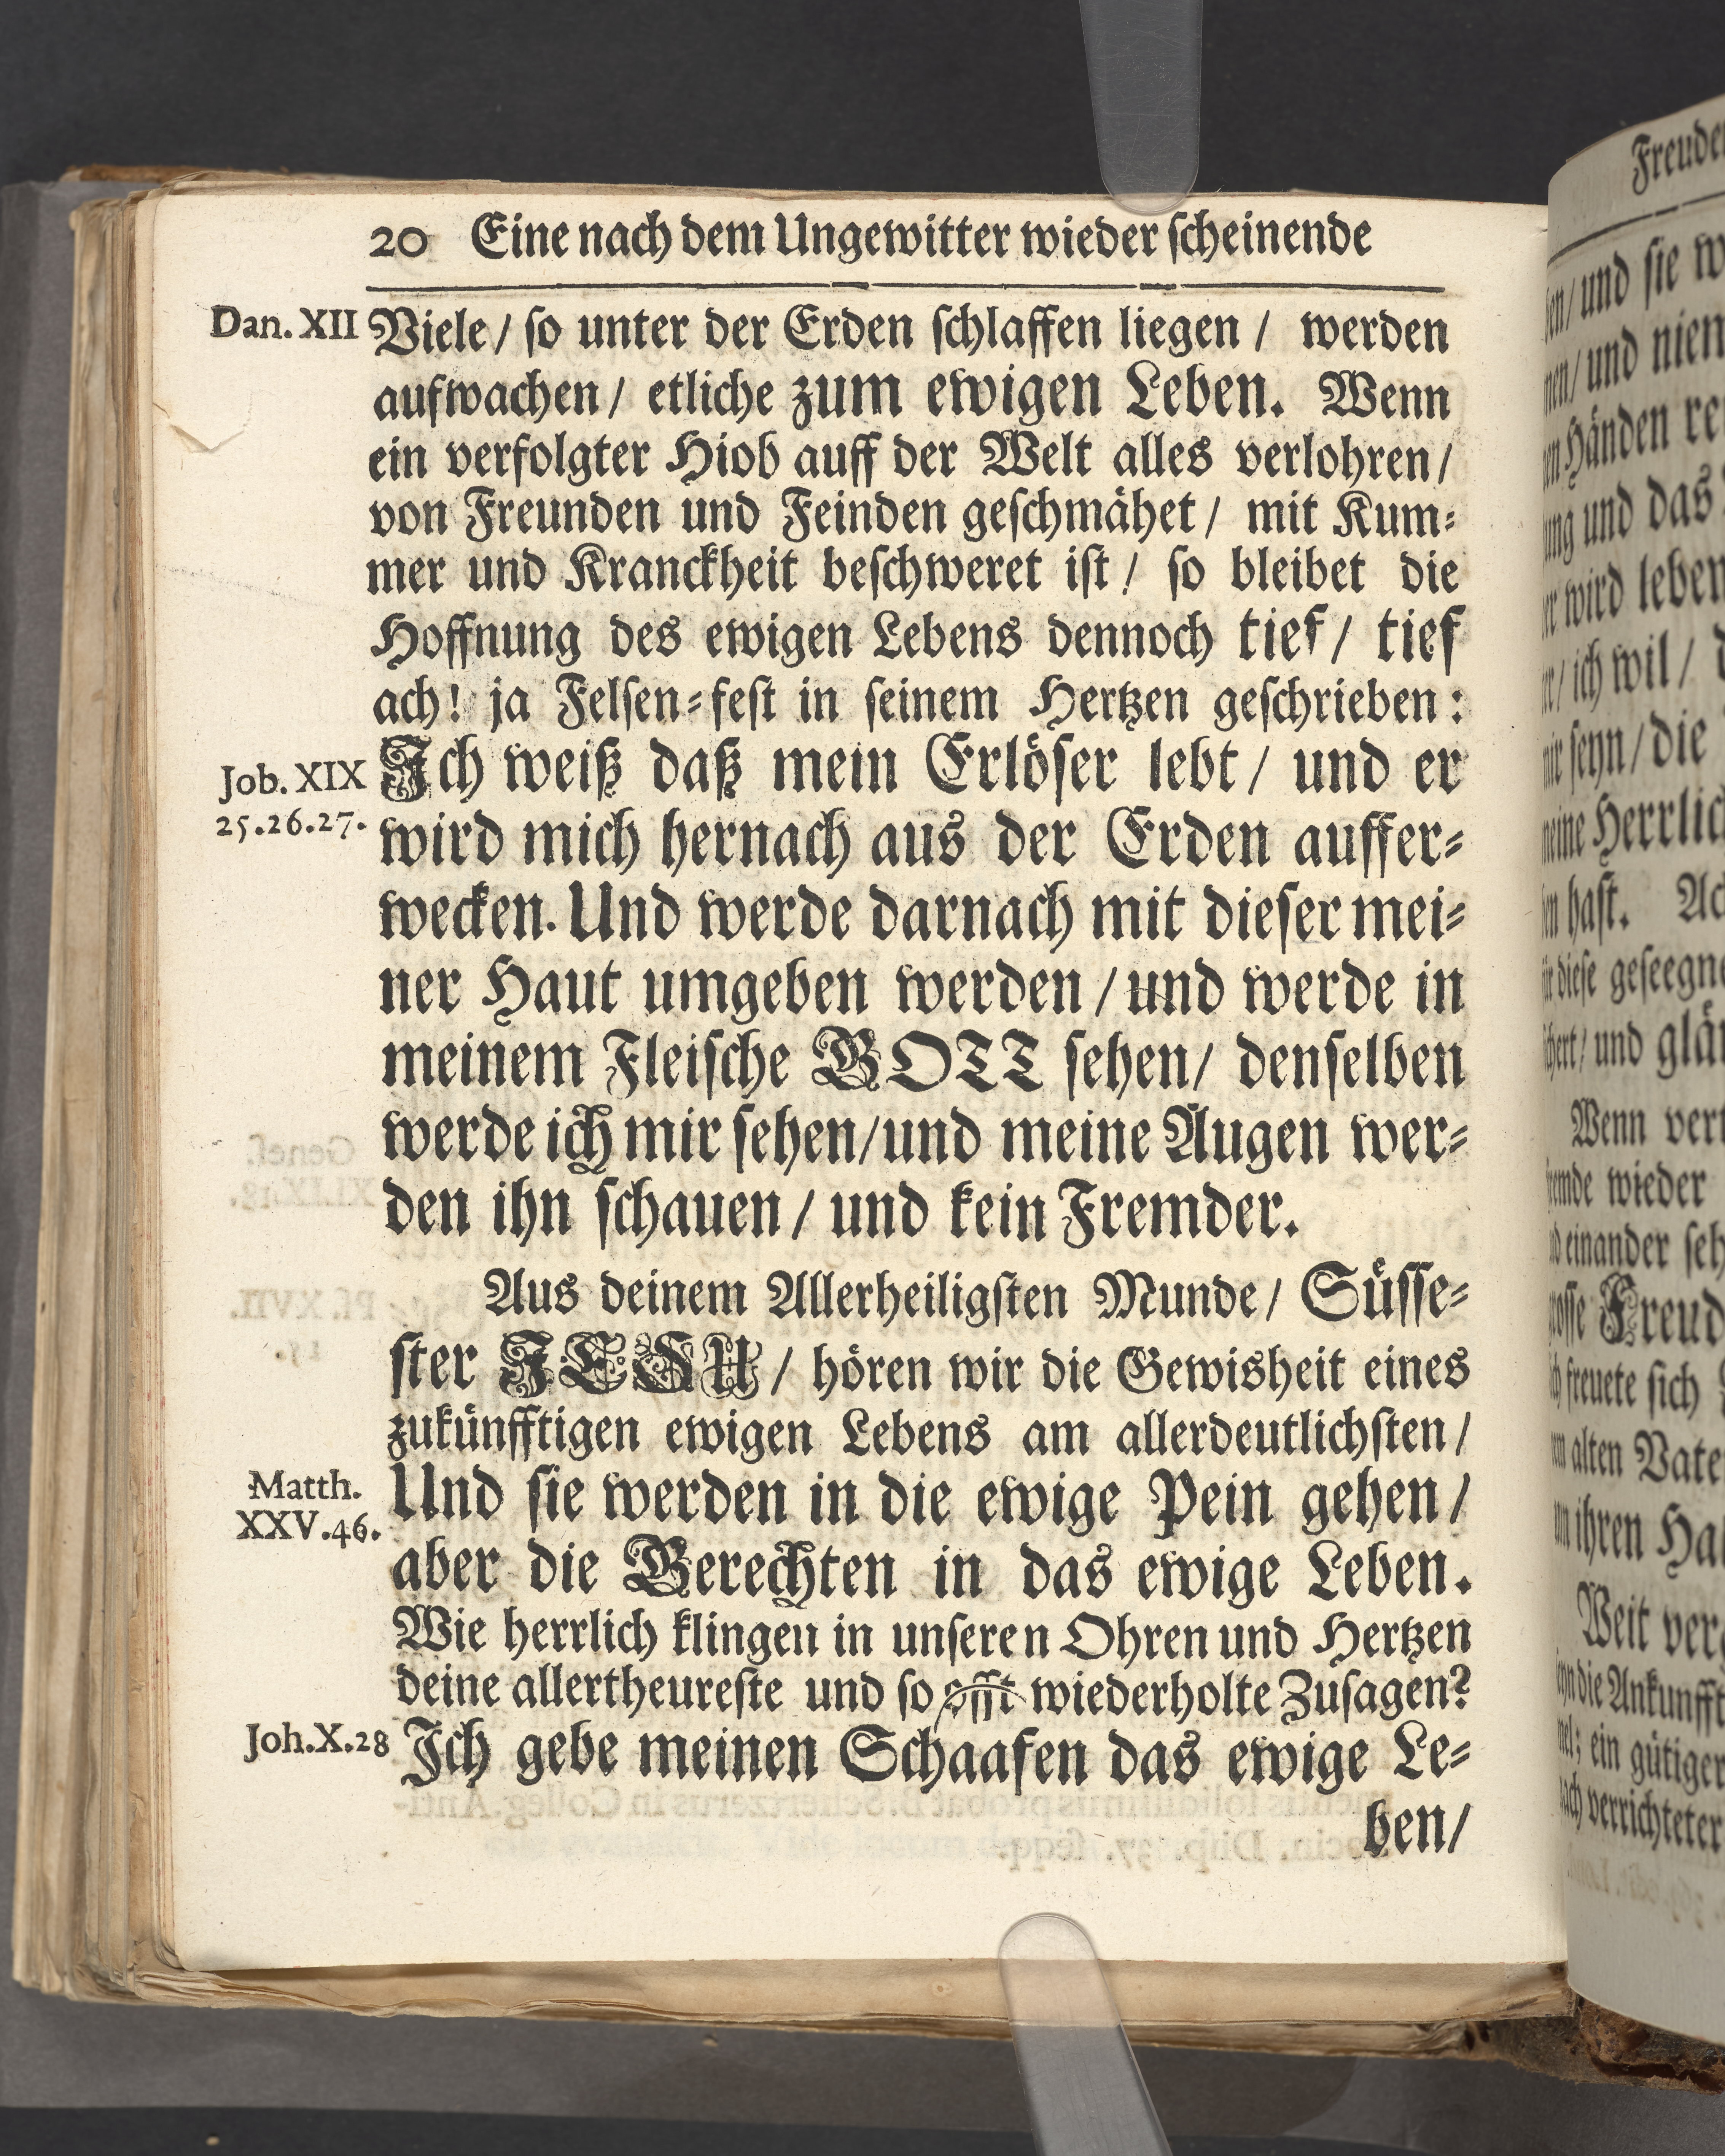 20 Eine nach dem Ungewitter wieder scheinende
Dan. XII
Viele / so unter der Erden schlaffen liegen / werden
aufwachen / etliche zum ewigen Leben. Wenn
ein verfolgter Hiob auff der Welt alles verlohren /
von Freunden und Feinden geschmähet / mit Kum-
mer und Kranckheit beschweret ist / so bleibet die
Hoffnung des ewigen Lebens dennoch tief / tief
ach! ja Felsen-fest in seinem Hertzen geschrieben:
Job. XIX
25.26.27.
Ich weiß daß mein Erlöser lebt / und er
wird mich hernach aus der Erden auffer-
wecken. Und werde darnach mit dieser mei-
ner Haut umgeben werden / und werde in
meinem Fleische GOTT sehen / denselben
werde ich mir sehen / und meine Augen wer-
den ihn schauen / und kein Fremder.
Aus deinem Allerheiligsten Munde / Süsse-
ster JESU / hören wir die Gewisheit eines
zukünfftigen ewigen Lebens am allerdeutlichsten /
Matth.
XXV.46.
Und sie werden in die ewige Pein gehen /
aber die Gerechten in das ewige Leben.
Wie herrlich klingen in unseren Ohren und Hertzen
deine allertheureste und so offt wiederholte Zusagen?
Joh.X.28
Ich gebe meinen Schaafen das ewige Le-
ben /
Freude
und sie
und nien
Händen
und das
wird leben
ich wil /
seyn / die
meine
hast.
diese
und
Wenn
wieder
einander
Freud
freuete sich
alten
ihren
Weit
die Ankunfft
ein gütiger
verrichteter